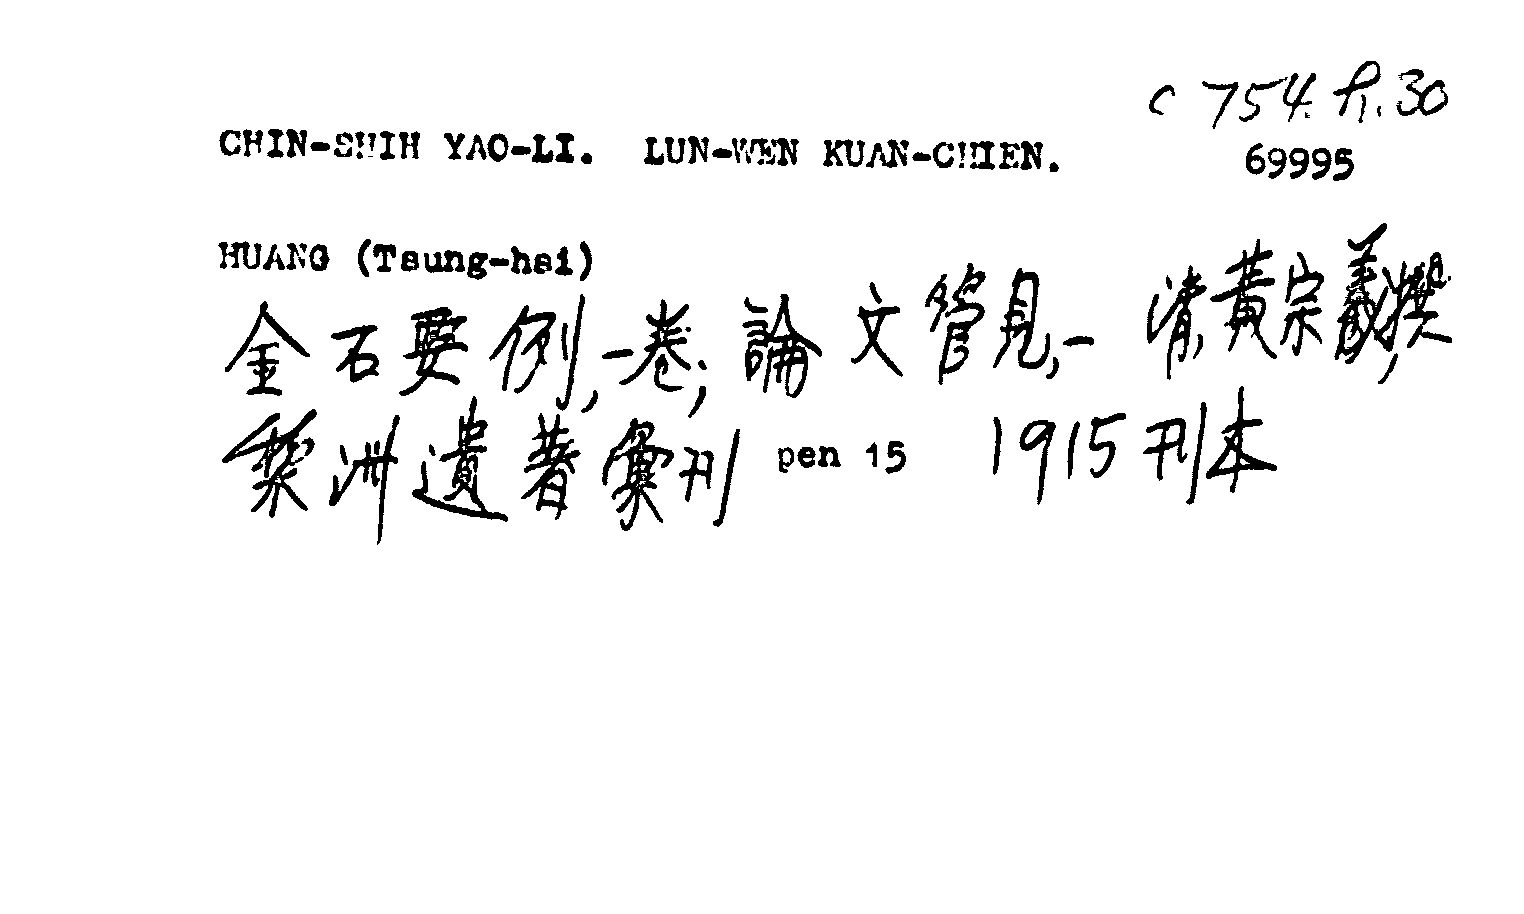 c 754. P. 30
CHIN-SHIH YAO-LI. LUN-WEN KUAN-CHIEN.
69995
HUANG (Tsung-hsi)
金石要例,一卷; 論文管見,一 清,黃宗羲,撰
黎洲遺著彙刊 pen 15 1915刊本